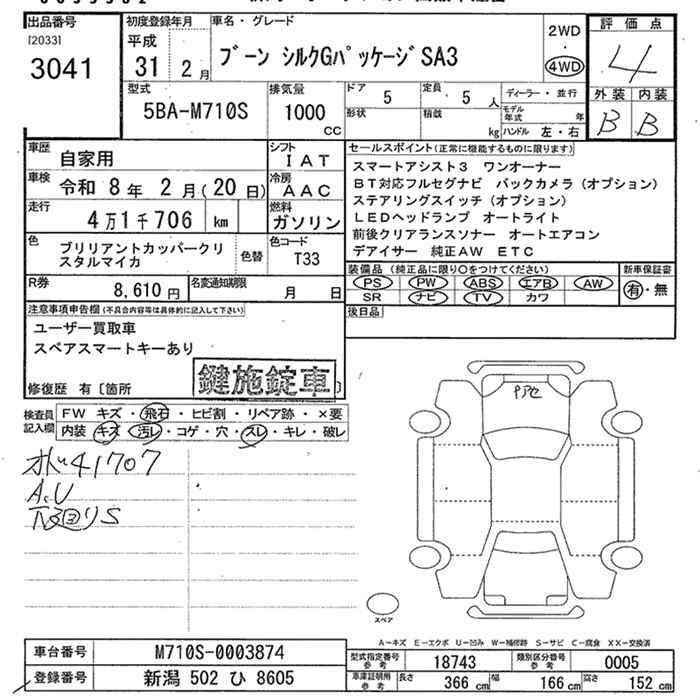 出品番号
[2033]
3041
初度登録年月
平成
31年 2月
車名・グレード
ブーン シルクGパッケージSA3
2WD
・
4WD
評価点
4
型式
5BA-M710S
排気量
1000
CC
ドア
5
定員
5人
ディーラー・並行
形状
積載
kg
モデル年式
年
ハンドル 左・右
外装 内装
B B
車歴
自家用
シフト
IAT
車検
令和 8年 2月(20日)
冷房
AAC
走行
4万1千706 km
燃料
ガソリン
色
ブリリアントカッパークリスタルマイカ
色替
色コード
T33
R券
8,610円
名変通知期限
月 日
セールスポイント(正常に機能するものに限ります)
スマートアシスト3 ワンオーナー
BT対応フルセグナビ バックカメラ(オプション)
ステアリングスイッチ(オプション)
LEDヘッドランプ オートライト
前後クリアランスソナー オートエアコン
デアイサー 純正AW ETC
装備品(純正品に限り○をつけてください)
新車保証書
PS PW ABS エアB AW
有・無
SR ナビ TV カワ
後日品
注意事項申告欄(不具合内容等は具体的に記入して下さい)
ユーザー買取車
スペアスマートキーあり
鍵施錠車
修復歴 有[箇所
]
検査員記入欄
FW キズ・飛石・ヒビ割・リペア跡・×要
内装 キズ・汚レ・コゲ・穴・スレ・キレ・破レ
41707
A.U
スペア
A-キズ E-エクボ U-凹み W-補修跡 S-サビ C-腐食 XX-交換済
車台番号
M710S-0003874
登録番号
新潟 502 ひ 8605
型式指定番号 参考
18743
類別区分番号 参考
0005
車庫証明用 参考
長さ 366 cm 幅 166 cm 高さ 152 cm